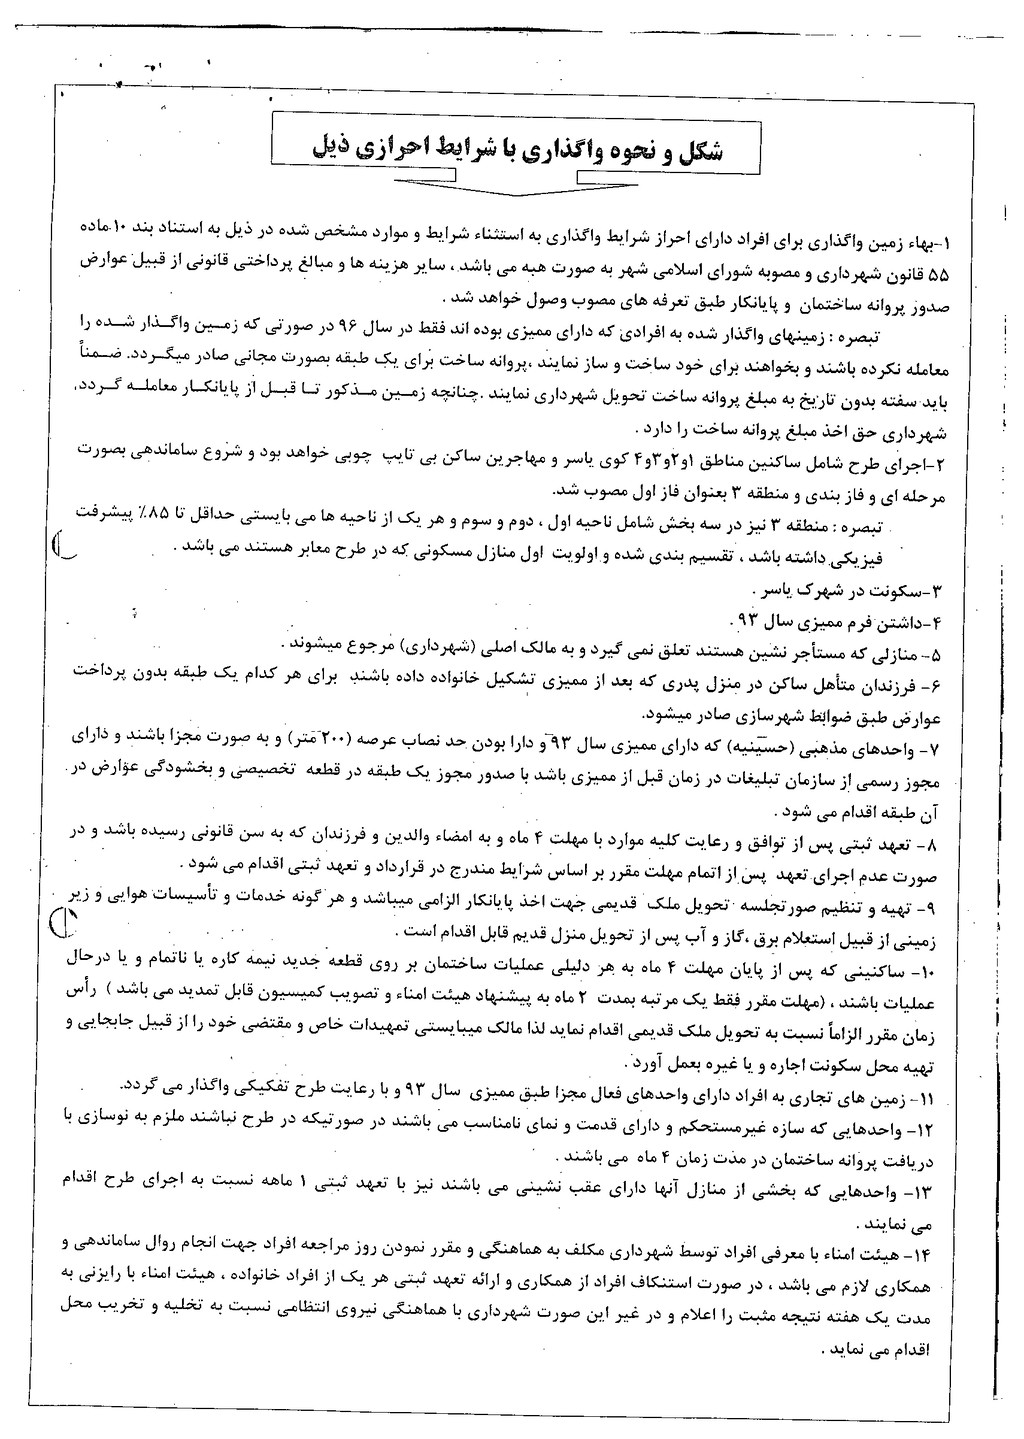 شکل و نحوه واگذاری با شرایط احرازی ذیل
۱-بهاء زمین واگذاری برای افراد دارای احراز شرایط واگذاری به استثناء شرایط و موارد مشخص شده در ذیل به استناد بند ۱۰ ماده
۵۵ قانون شهرداری و مصوبه شورای اسلامی شهر به صورت هبه می باشد ، سایر هزینه ها و مبالغ پرداختی قانونی از قبیل عوارض
صدور پروانه ساختمان و پایانکار طبق تعرفه های مصوب وصول خواهد شد .
تبصره : زمینهای واگذار شده به افرادی که دارای ممیزی بوده اند فقط در سال ۹۶ در صورتی که زمین واگذار شده را
معامله نکرده باشند و بخواهند برای خود ساخت و ساز نمایند ،پروانه ساخت برای یک طبقه بصورت مجانی صادر میگردد. ضمناً
باید سفته بدون تاریخ به مبلغ پروانه ساخت تحویل شهرداری نمایند .چنانچه زمین مذکور تا قبل از پایانکار معامله گردد،
شهرداری حق اخذ مبلغ پروانه ساخت را دارد .
۲-اجرای طرح شامل ساکنین مناطق ۱و۲و۳و۴ کوی یاسر و مهاجرین ساکن بی تایپ چوبی خواهد بود و شروع ساماندهی بصورت
مرحله ای و فاز بندی و منطقه ۳ بعنوان فاز اول مصوب شد.
تبصره : منطقه ۳ نیز در سه بخش شامل ناحیه اول ، دوم و سوم و هر یک از ناحیه ها می بایستی حداقل تا ۸۵٪ پیشرفت
فیزیکی داشته باشد ، تقسیم بندی شده و اولویت اول منازل مسکونی که در طرح معابر هستند می باشد .
۳-سکونت در شهرک یاسر .
۴-داشتن فرم ممیزی سال ۹۳ .
۵- منازلی که مستأجر نشین هستند تعلق نمی گیرد و به مالک اصلی (شهرداری) مرجوع میشوند .
۶- فرزندان متأهل ساکن در منزل پدری که بعد از ممیزی تشکیل خانواده داده باشند برای هر کدام یک طبقه بدون پرداخت
عوارض طبق ضوابط شهرسازی صادر میشود.
۷- واحدهای مذهبی (حسینیه) که دارای ممیزی سال ۹۳و دارا بودن حد نصاب عرصه (۲۰۰ متر) و به صورت مجزا باشند و دارای
مجوز رسمی از سازمان تبلیغات در زمان قبل از ممیزی باشد با صدور مجوز یک طبقه در قطعه تخصیصی و بخشودگی عوارض در
آن طبقه اقدام می شود .
۸- تعهد ثبتی پس از توافق و رعایت کلیه موارد با مهلت ۴ ماه و به امضاء والدین و فرزندان که به سن قانونی رسیده باشد و در
صورت عدم اجرای تعهد پس از اتمام مهلت مقرر بر اساس شرایط مندرج در قرارداد و تعهد ثبتی اقدام می شود .
۹- تهیه و تنظیم صورتجلسه تحویل ملک قدیمی جهت اخذ پایانکار الزامی میباشد و هر گونه خدمات و تأسیسات هوایی و زیر
زمینی از قبیل استعلام برق ،گاز و آب پس از تحویل منزل قدیم قابل اقدام است .
۱۰- ساکنینی که پس از پایان مهلت ۴ ماه به هر دلیلی عملیات ساختمان بر روی قطعه جدید نیمه کاره یا ناتمام و یا درحال
عملیات باشند ، (مهلت مقرر فقط یک مرتبه بمدت ۲ ماه به پیشنهاد هیئت امناء و تصویب کمیسیون قابل تمدید می باشد ) رأس
زمان مقرر الزاماً نسبت به تحویل ملک قدیمی اقدام نماید لذا مالک میبایستی تمهیدات خاص و مقتضی خود را از قبیل جابجایی و
تهیه محل سکونت اجاره و یا غیره بعمل آورد .
۱۱- زمین های تجاری به افراد دارای واحدهای فعال مجزا طبق ممیزی سال ۹۳ و با رعایت طرح تفکیکی واگذار می گردد.
۱۲- واحدهایی که سازه غیرمستحکم و دارای قدمت و نمای نامناسب می باشند در صورتیکه در طرح نباشند ملزم به نوسازی با
دریافت پروانه ساختمان در مدت زمان ۴ ماه می باشند .
۱۳- واحدهایی که بخشی از منازل آنها دارای عقب نشینی می باشند نیز با تعهد ثبتی ۱ ماهه نسبت به اجرای طرح اقدام
می نمایند .
۱۴- هیئت امناء با معرفی افراد توسط شهرداری مکلف به هماهنگی و مقرر نمودن روز مراجعه افراد جهت انجام روال ساماندهی و
همکاری لازم می باشد ، در صورت استنکاف افراد از همکاری و ارائه تعهد ثبتی هر یک از افراد خانواده ، هیئت امناء با رایزنی به
مدت یک هفته نتیجه مثبت را اعلام و در غیر این صورت شهرداری با هماهنگی نیروی انتظامی نسبت به تخلیه و تخریب محل
اقدام می نماید .